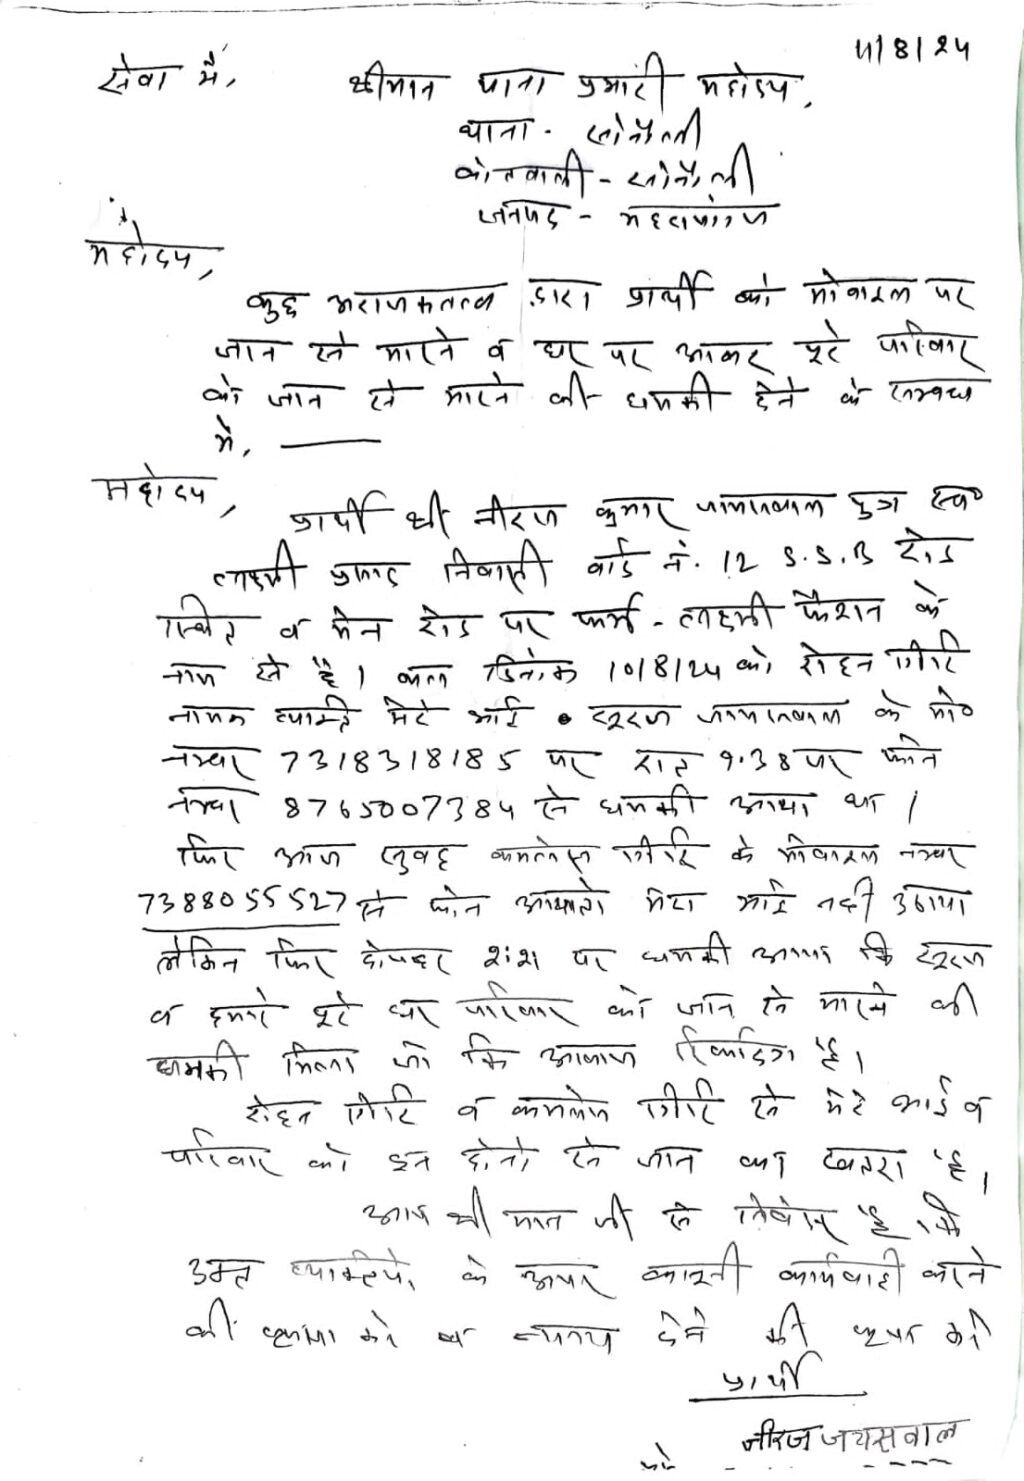 11/8/24
सेवा में,
श्रीमान थाना प्रभारी महोदय,
थाना - सोनौली
कोतवाली - सोनौली
जनपद - महराजगंज
महोदय,
कुछ अराजकतत्व द्वारा प्रार्थी को मोबाइल पर
जान से मारने व घर पर आकर पूरे परिवार
को जान से मारने की धमकी देने के सम्बन्ध
में,
महोदय,
प्रार्थी श्री नीरज कुमार जायसवाल पुत्र स्व०
लक्ष्मी प्रसाद निवासी वार्ड नं. 12 S.S.B रोड
स्थित व मेन रोड पर फर्म - लक्ष्मी फैशन के
नाम से है। कल दिनांक 10/8/24 को रोहन गिरि
नामक व्यक्ति मेरे भाई जायसवाल के मो०
नम्बर 7318318185 पर रात 9.38 पर फोन
नम्बर 8765007384 से धमकी आया था।
फिर आज सुबह कमलेश गिरि के मोबाइल नम्बर
7388055527 से फोन आया तो मेरा भाई नही उठाया
लेकिन फिर दोपहर पर धमकी आया कि
व हमारे पूरे घर परिवार को जान से मारने की
धमकी मिला जो कि आवाज रिकार्डिंग है।
रोहन गिरि व कमलेश गिरि से मेरे भाई व
परिवार को इन दोनो से जान का खतरा है।
आप श्री मान जी से निवेदन है कि
उक्त व्यक्तियो के ऊपर कानूनी कार्यवाही करने
की कृपा करे व न्याय देने की कृपा करे
प्रार्थी
नीरज जयसवाल
मो०